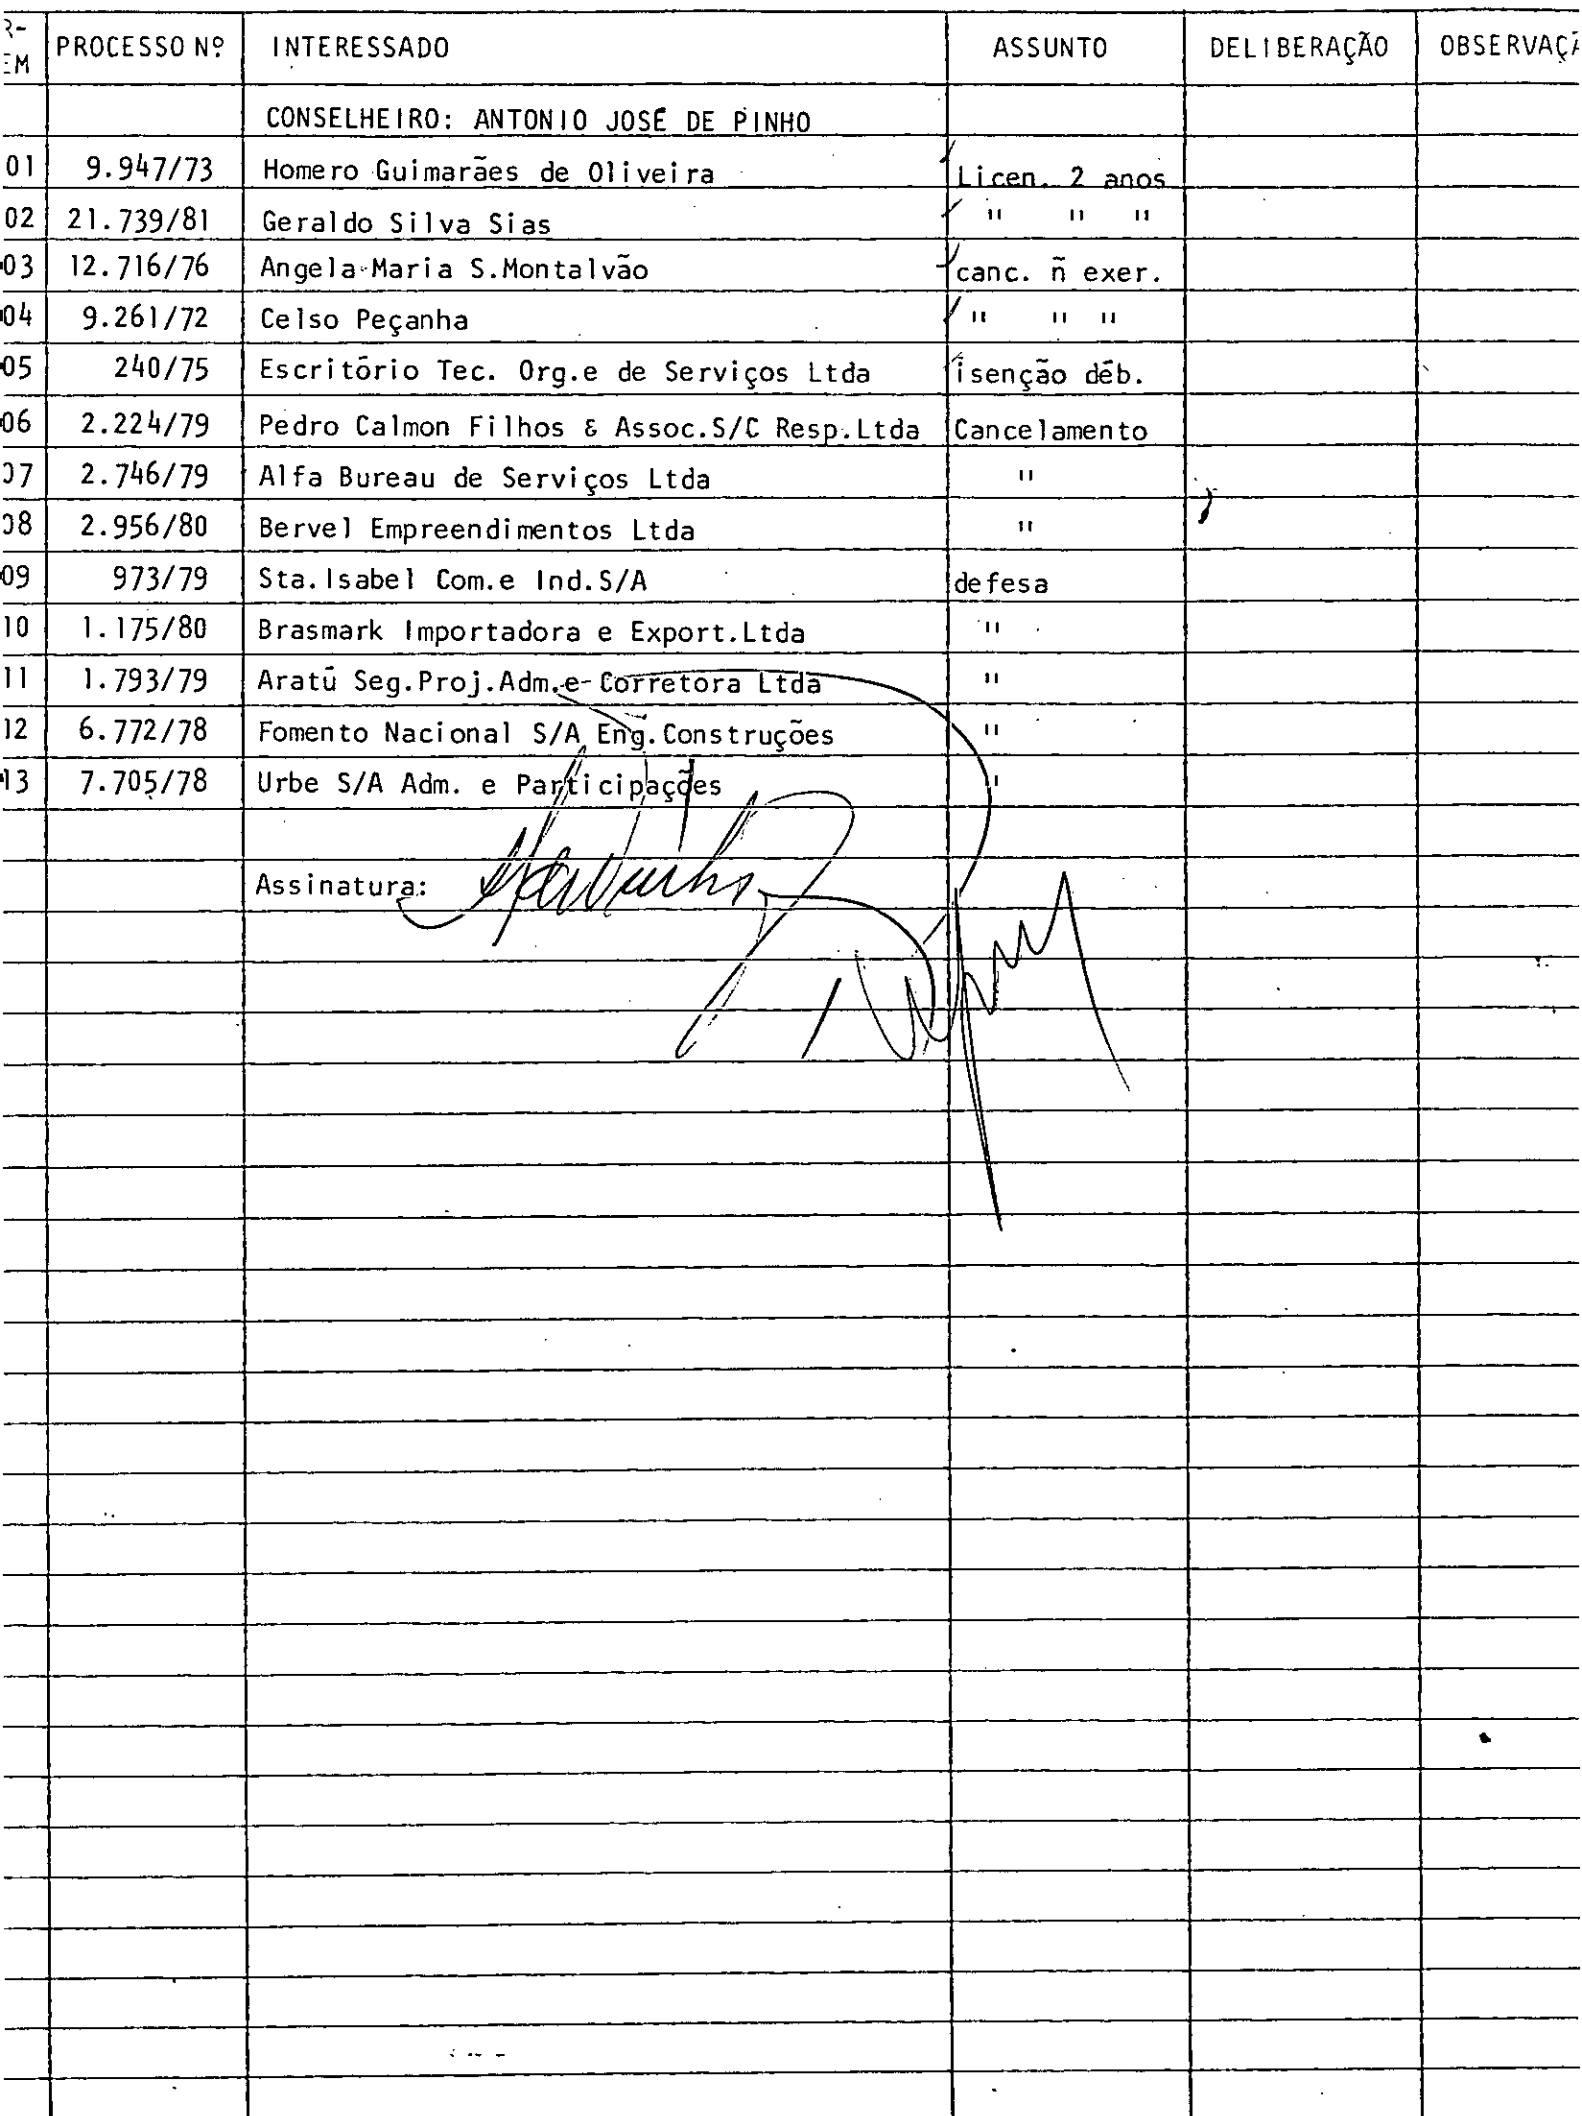 R- PROCESSO Nº INTERESSADO ASSUNTO DELIBERAÇÃO OBSERVAÇÃ
EM
CONSELHEIRO: ANTONIO JOSÉ DE PINHO
01 9.947/73 Homero Guimarães de Oliveira Licen. 2 anos
02 21.739/81 Geraldo Silva Sias " " "
03 12.716/76 Angela Maria S.Montalvão canc. ñ exer.
04 9.261/72 Celso Peçanha " " "
05 240/75 Escritório Tec. Org.e de Serviços Ltda isenção déb.
06 2.224/79 Pedro Calmon Filhos & Assoc.S/C Resp.Ltda Cancelamento
07 2.746/79 Alfa Bureau de Serviços Ltda "
08 2.956/80 Bervel Empreendimentos Ltda "
09 973/79 Sta.Isabel Com.e Ind.S/A defesa
10 1.175/80 Brasmark Importadora e Export.Ltda "
11 1.793/79 Aratú Seg.Proj.Adm.e Corretora Ltda "
12 6.772/78 Fomento Nacional S/A Eng.Construções "
13 7.705/78 Urbe S/A Adm. e Participações "
Assinatura: